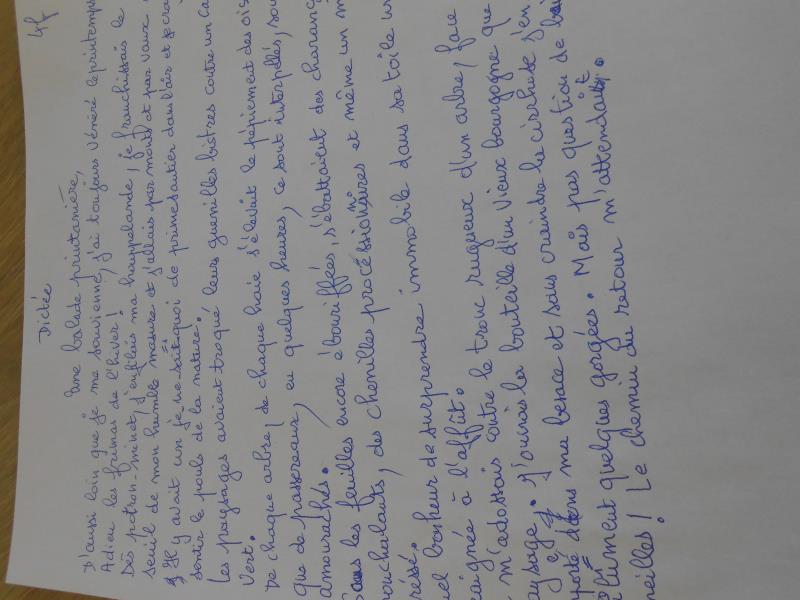 4f
Dictée
Une balade printanière,
D'aussi loin que je me souvienne, j'ai toujours vénéré le printemps
Adieu les frimas de l'hiver!
Dès potron-minet, j'enfilais ma houppelande, je franchissais le
seuil de mon humble masure et j'allais par monts et par vaux
Il y avait un je ne sait quoi de primesautier dans l'air et je
sentir le pouls de la nature.
Les paysages avaient troqué leurs guenilles bistres contre un
Vert.
De chaque arbre, de chaque haie s'élevait le pépiement des
que de passereaux, en quelques heures, ce sont interpellés,
amourachés.
Sous les feuilles encore ébouriffées, s'ébattaient des
des chenilles processionnaires et même un
immobile dans sa toile
bonheur de surprendre
à l'affût.
m'adossais contre le tronc rugueux d'un arbre, face
J'ouvris la bouteille d'un Vieux bourgogne que
dans ma besace et sans craindre la cirrhose j'en
quelques gorgées. Mais pas question de
Le chemin du retour m'attendait.